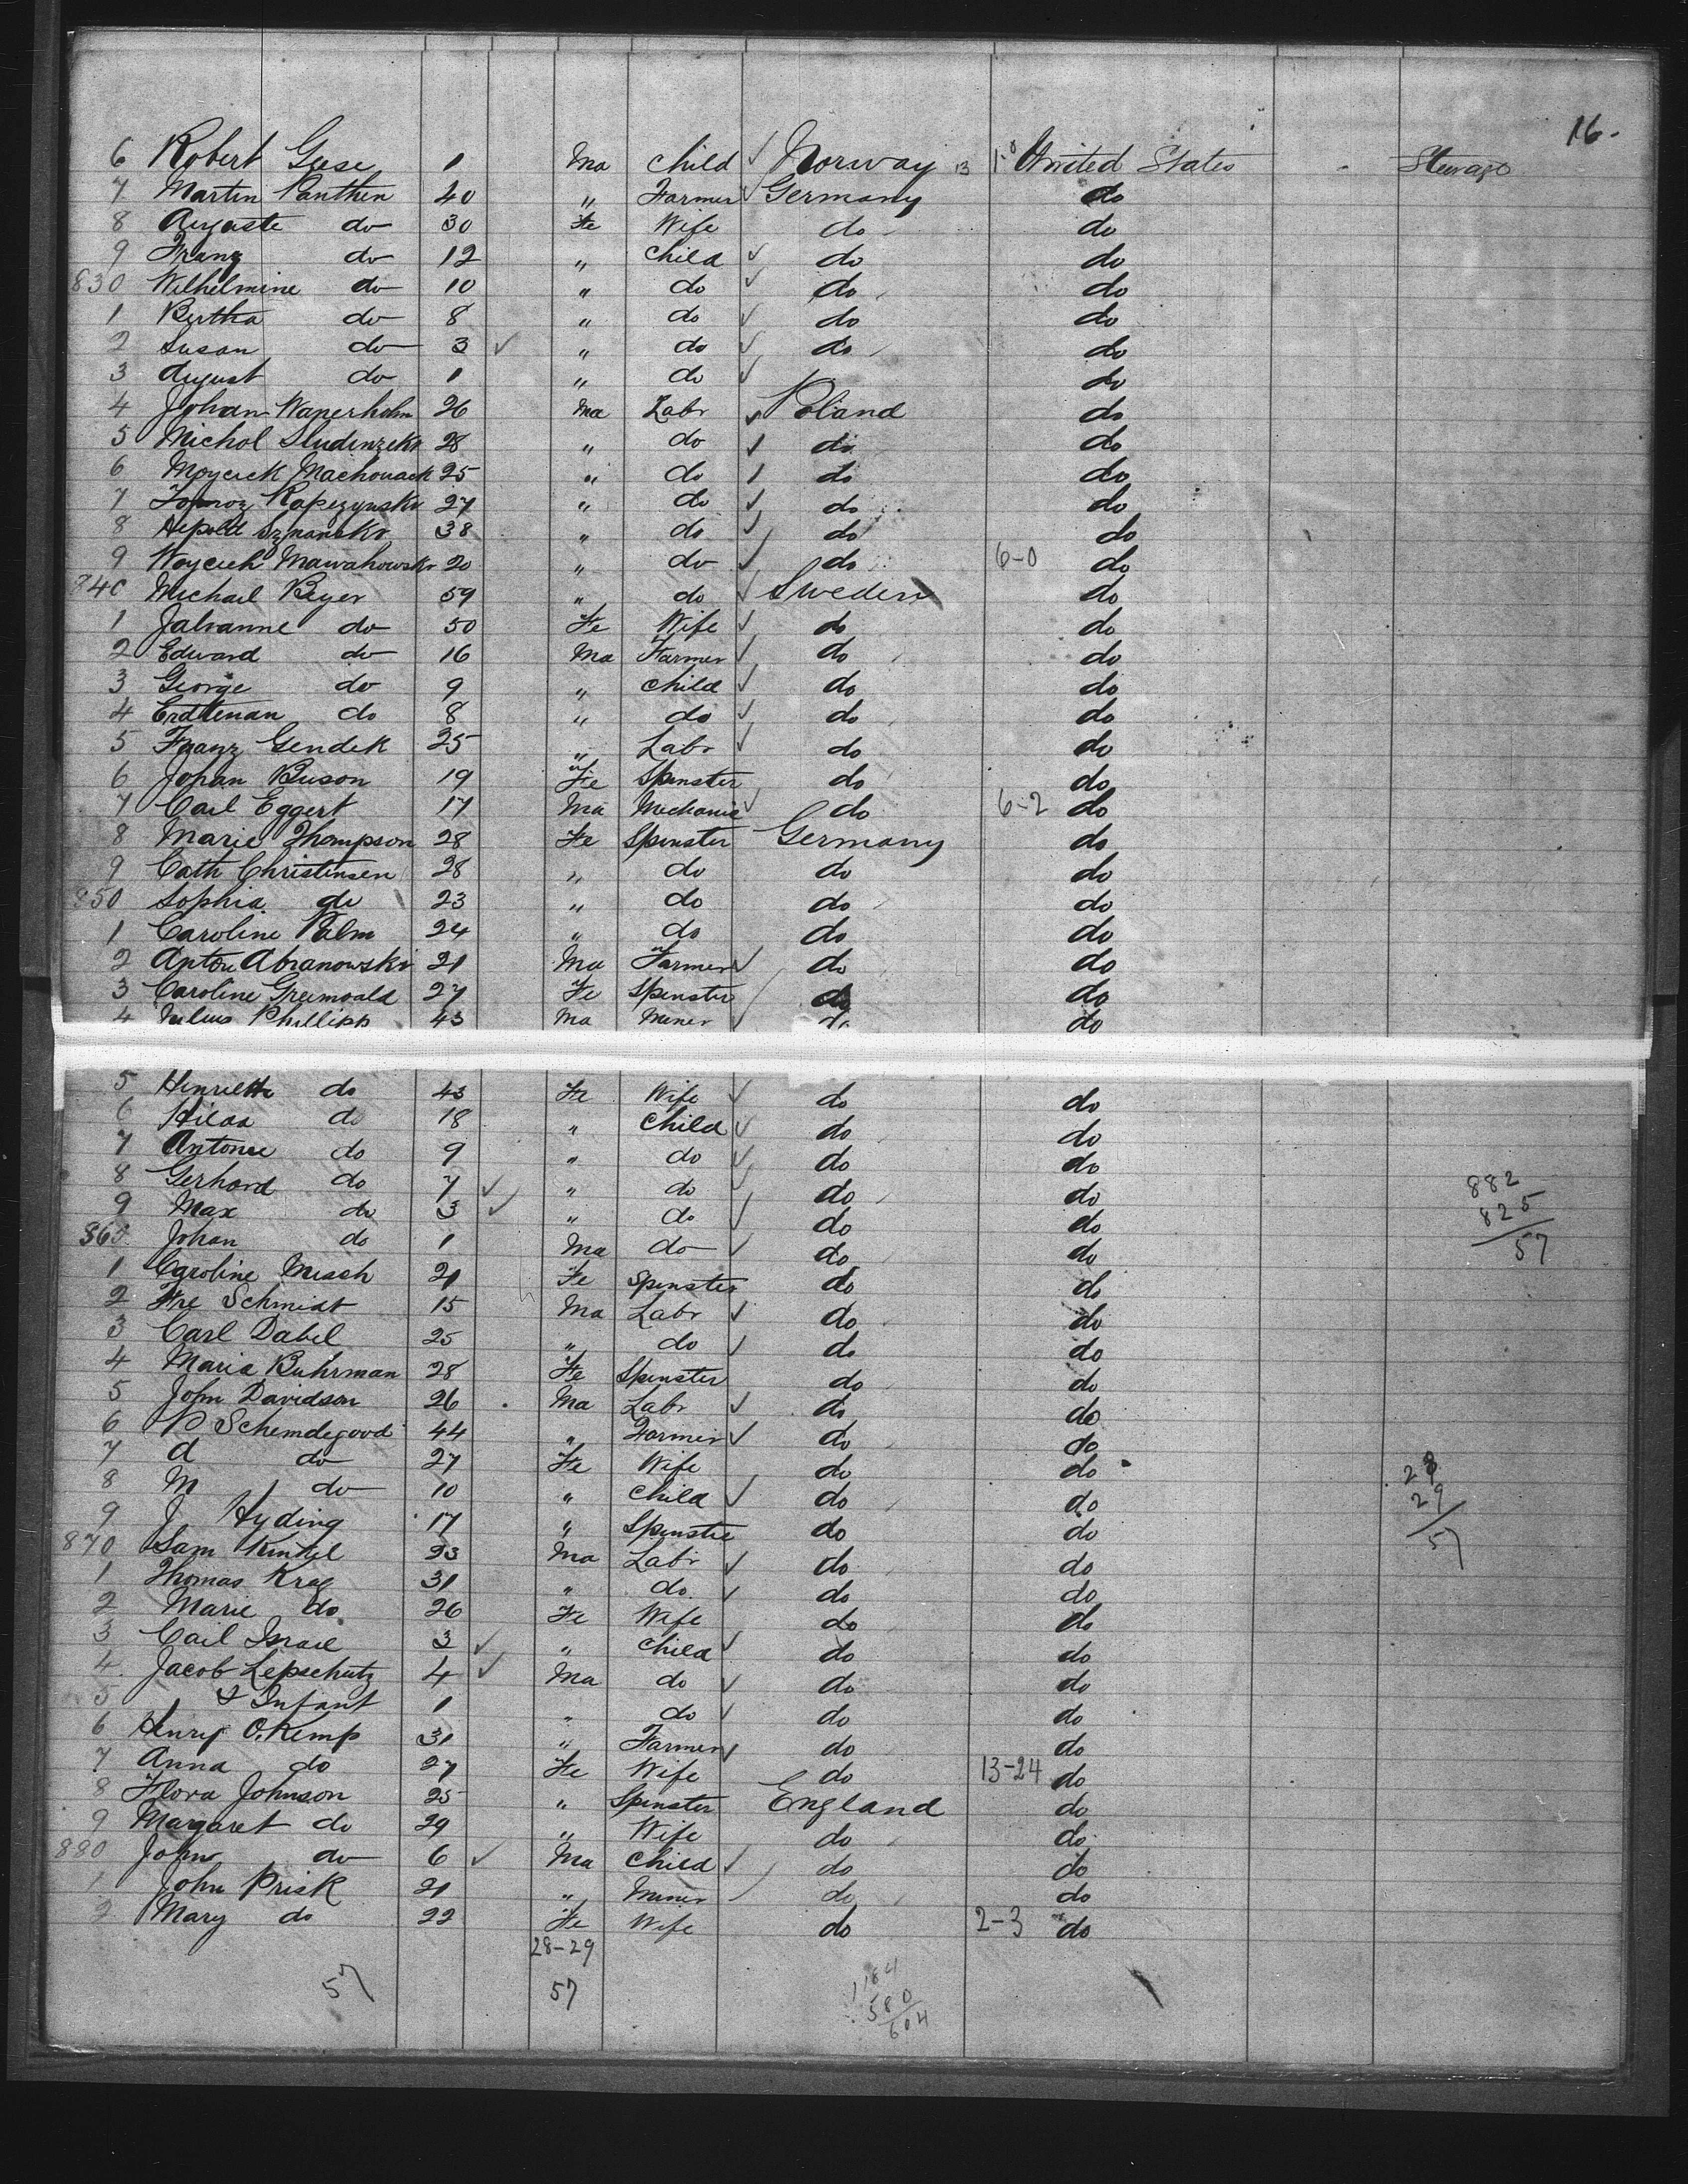 16.
6 Robert Geese 1 Ma Child ✓ Norway 13 1-0 United States - Steerage
7 Martin Panthen 40 " Farmer ✓ Germany do
8 Auguste do 30 Fe Wife do do
9 Franz do 12 " Child ✓ do do
830 Wilhelmine do 10 " do ✓ do do
1 Bertha do 8 " do ✓ do do
2 Susan do 3 ✓ " do ✓ do do
3 August do 1 " do ✓ do
4 Johan Wanerholm 26 Ma Labr ✓ Poland do
5 Michol 28 " do ✓ do do
6 Moyceck Machouack 25 " do ✓ do do
7 Rapczynski 27 " do ✓ do do
8 38 " do ✓ do do
9 Woycieh Mawahowski 20 " do ✓ do 6-0 do
840 Michael Beyer 59 " do ✓ Sweden do
1 Jalvanne do 50 Fe Wife ✓ do do
2 Edward do 16 Ma Farmer ✓ do do
3 George do 9 " Child ✓ do do
4 Erdtenan do 8 " do ✓ do do
5 Franz Gendek 25 " Labr ✓ do do
6 Johan Buson 19 Fe Spinster do do
7 Carl Eggert 17 Ma Mechanic ✓ do 6-2 do
8 Marie Thompson 28 Fe Spinster Germany do
9 Cath Christensen 28 " do do do
850 Sophia do 23 " do do do
1 Caroline Palm 24 " do do do
2 Anton Abranowski 21 Ma Farmer ✓ do do
3 Caroline Greenwald 27 Fe Spinster do do
4 Julius Phillipp 43 Ma Miner ✓ do do
5 Henriette do 43 Fe Wife ✓ do do
6 Hilda do 18 " Child ✓ do do
7 Antonie do 9 " do ✓ do do
8 Gerhard do 7 ✓ " do ✓ do do 882
9 Max do 3 ✓ " do ✓ do do 825
860 Johan do 1 Ma do ✓ do do 57
1 Caroline Misch 21 Fe Spinster do do
2 Fre Schmidt 15 Ma Labr ✓ do do
3 Carl Dabel 25 " do ✓ do do
4 Maria Buhrman 28 Fe Spinster do do
5 John Davidson 26 Ma Labr ✓ do do
6 P Schemdegood 44 " Farmer ✓ do do
7 A do 27 Fe Wife do do 28
8 M do 10 " Child ✓ do do 29
9 J Hyding 17 " Spinster do do 57
870 Sam Kintzel 23 Ma Labr ✓ do do
1 Thomas Krag 31 " do ✓ do do
2 Marie do 26 Fe Wife do do
3 Carl Israel 3 ✓ " Child ✓ do do
4 Jacob Lepschutz 4 ✓ Ma do ✓ do do
5 & Infant 1 " do ✓ do do
6 Henry O. Kemp 31 " Farmer ✓ do do
7 Anna do 27 Fe Wife do 13-24 do
8 Flora Johnson 25 " Spinster England do
9 Margaret do 29 " Wife do do
880 John do 6 ✓ Ma Child ✓ do do
1 John Prisk 21 " Miner do do
2 Mary do 22 Fe Wife do 2-3 do
28-29
57 57
1184
580
604